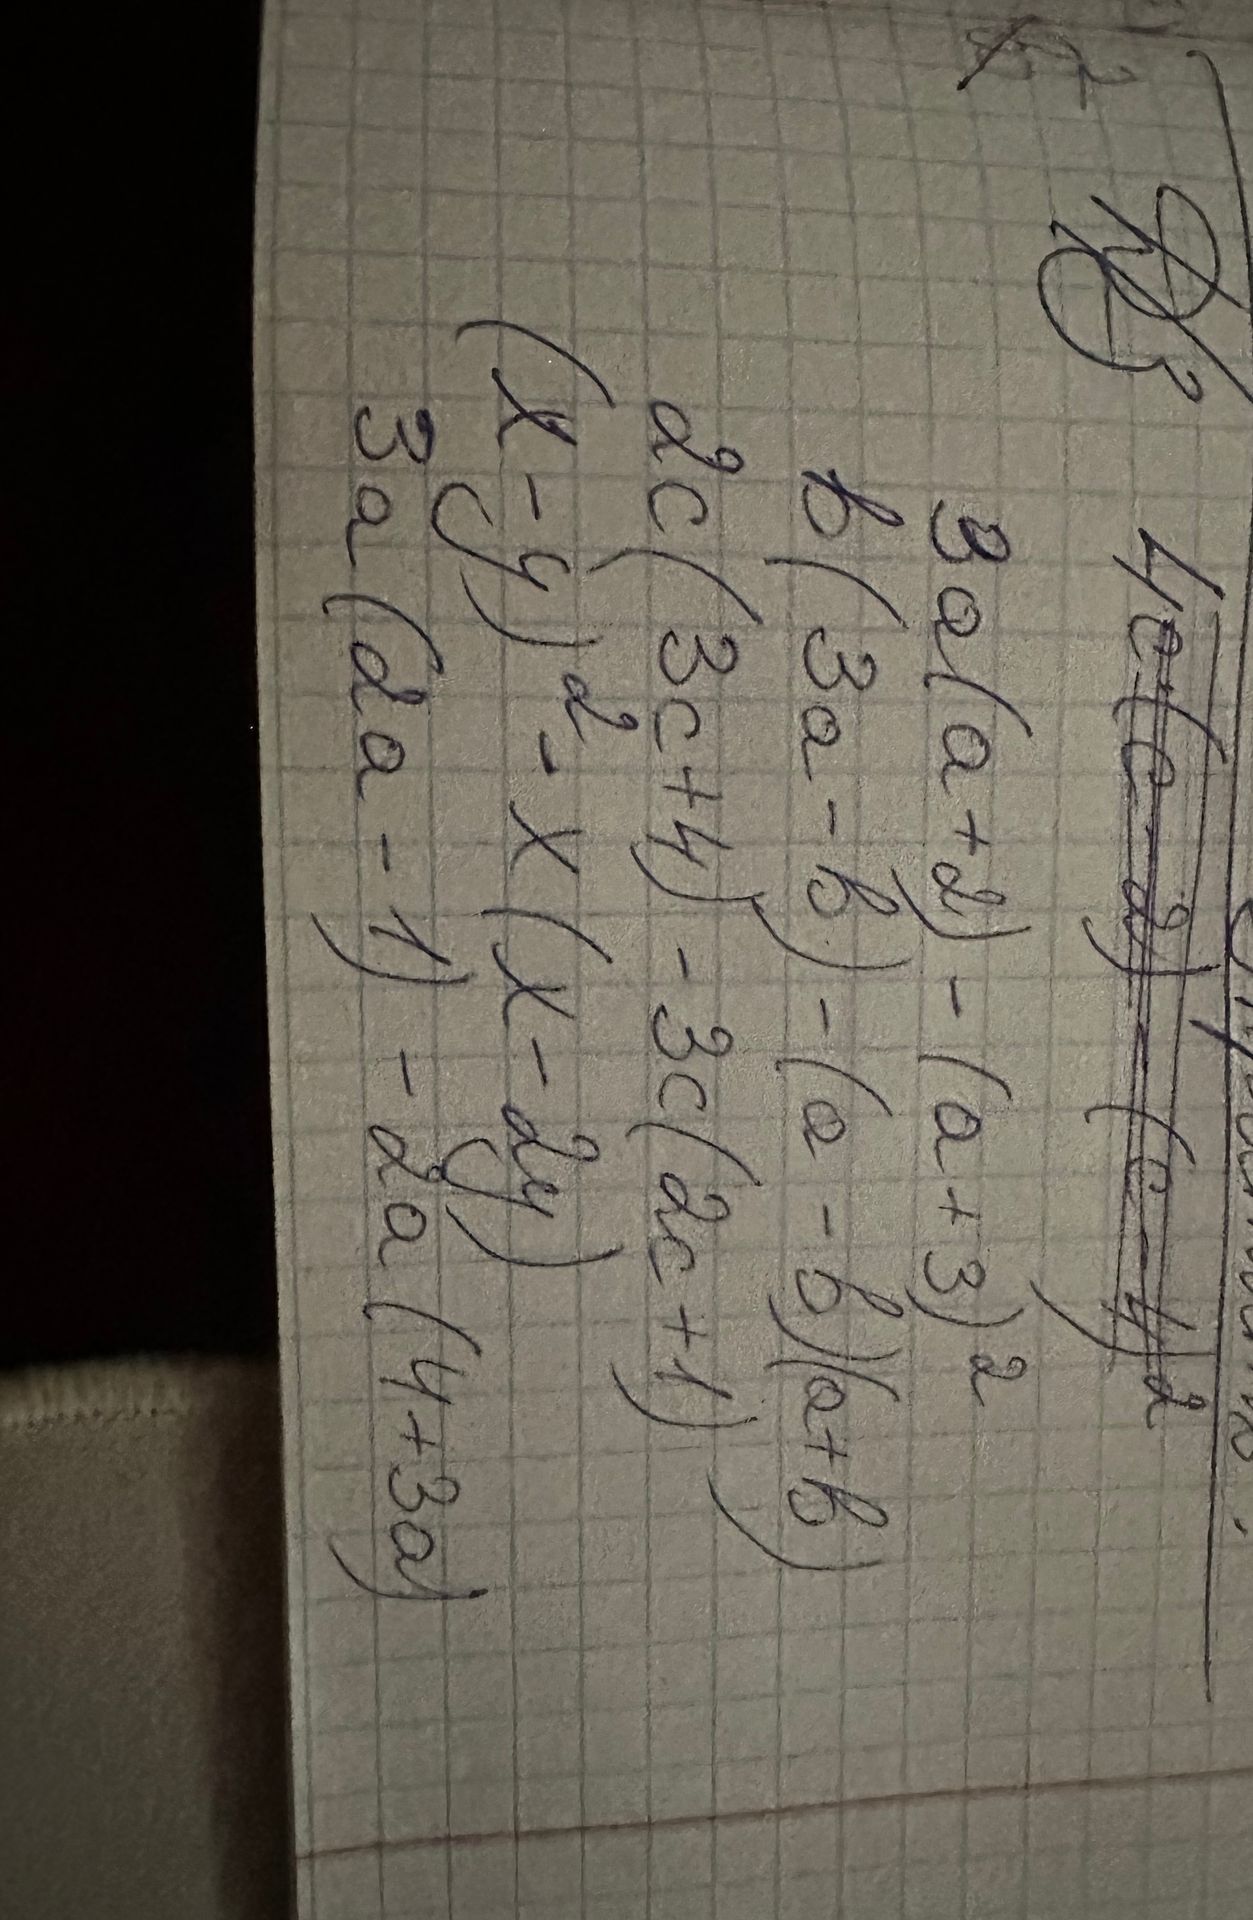 4c(c-2)-(c-4)²
3a(a+2)-(a+3)²
b(3a-b)-(a-b)(a+b)
2c(3c+4)-3c(2c+1)
(x-y)²-x(x-2y)
3a(2a-1)-2a(4+3a)